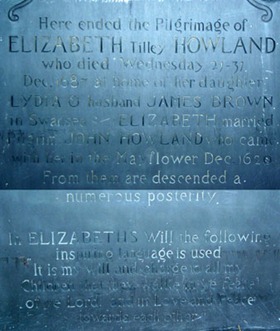 Here ended the Pilgrimage of
ELIZABETH Tilley HOWLAND
who died Wednesday
Dec. 1687 at home of her daughter
LYDIA & husband JAMES BROWN
in Swansea ELIZABETH married
Pilgrim JOHN HOWLAND
the Mayflower Dec 1620
From them are descended a
numerous posterity.
In ELIZABETHS Will the following
Inspiring Language is used
It is my will and charge to all my
Children that they walk in
ye Lord and in Love and Peace
towards each other